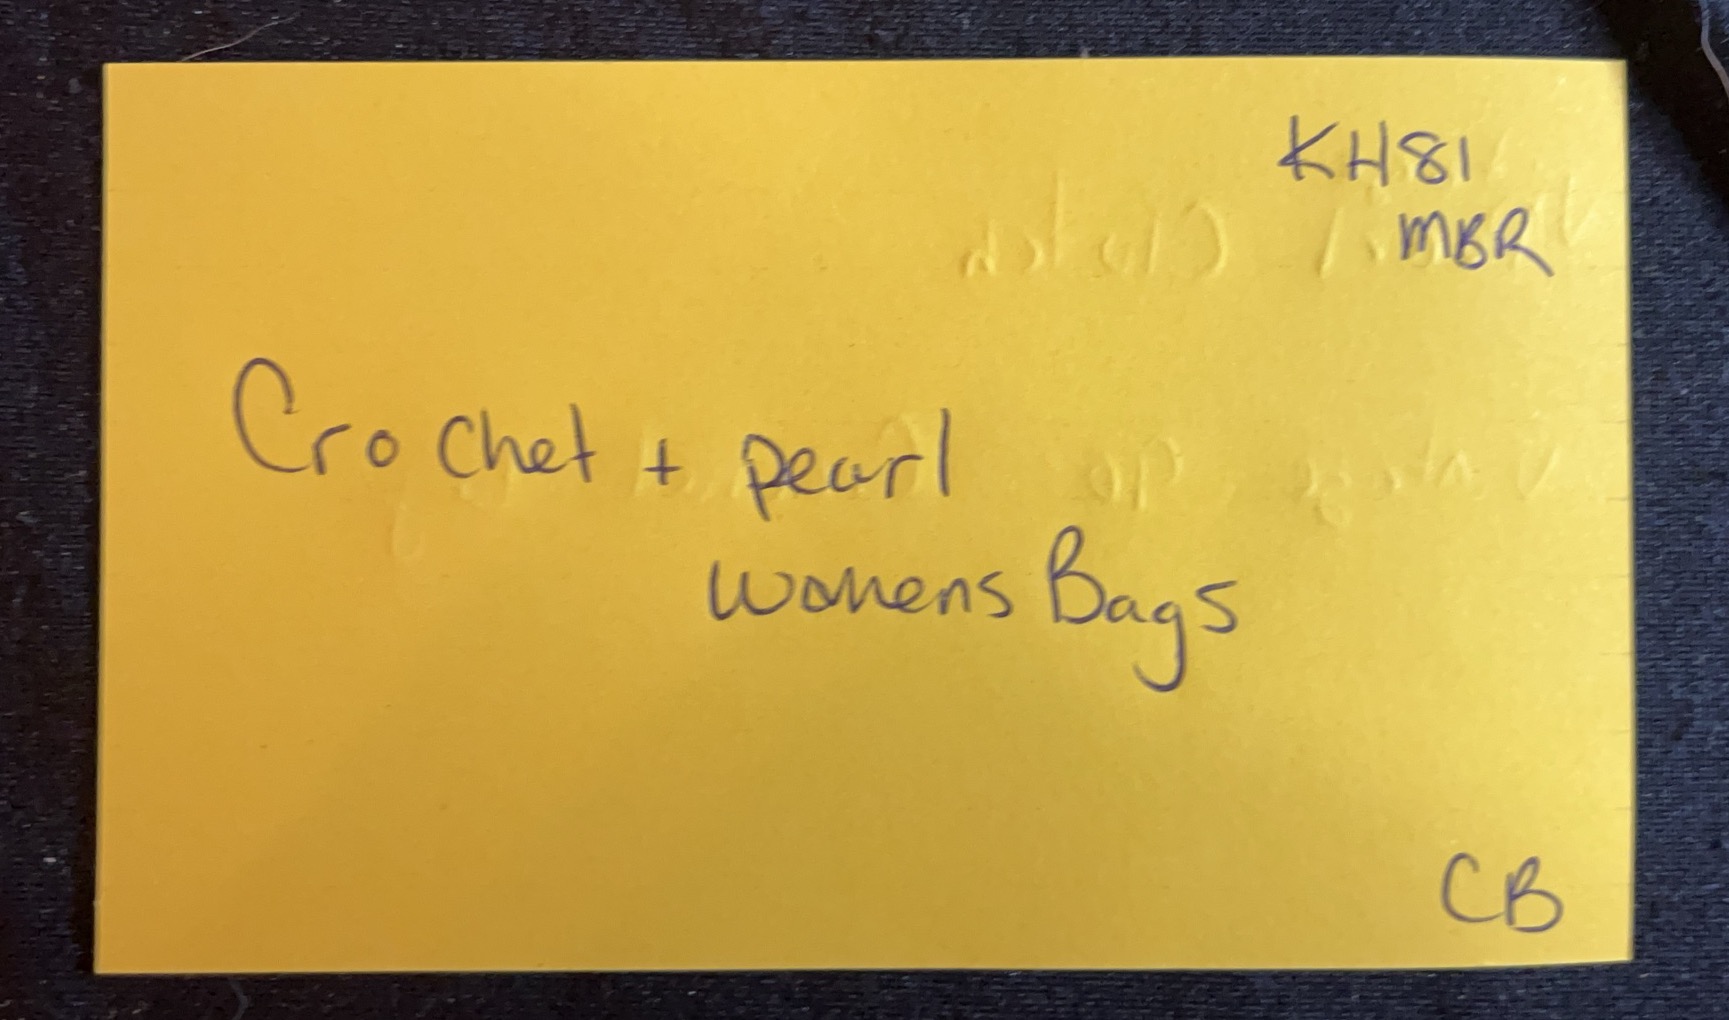 KH81
MBR
Crochet + pearl
womens Bags
CB